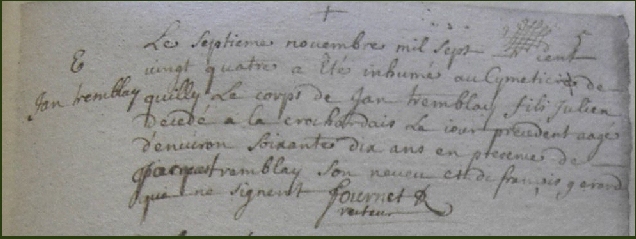 Le Septieme novembre mil sept cent
E
vingt quatre a Eté inhumé au Cymetiere de
Jan tremblay
quilly Le corps de Jan tremblay fils Julien
Décédé a la crochardais Le iour précédent aagé
d'environ Soixante dix ans en présence de
Jacques tremblay Son neveu et de françois gerard
que ne signent fournet R
recteur